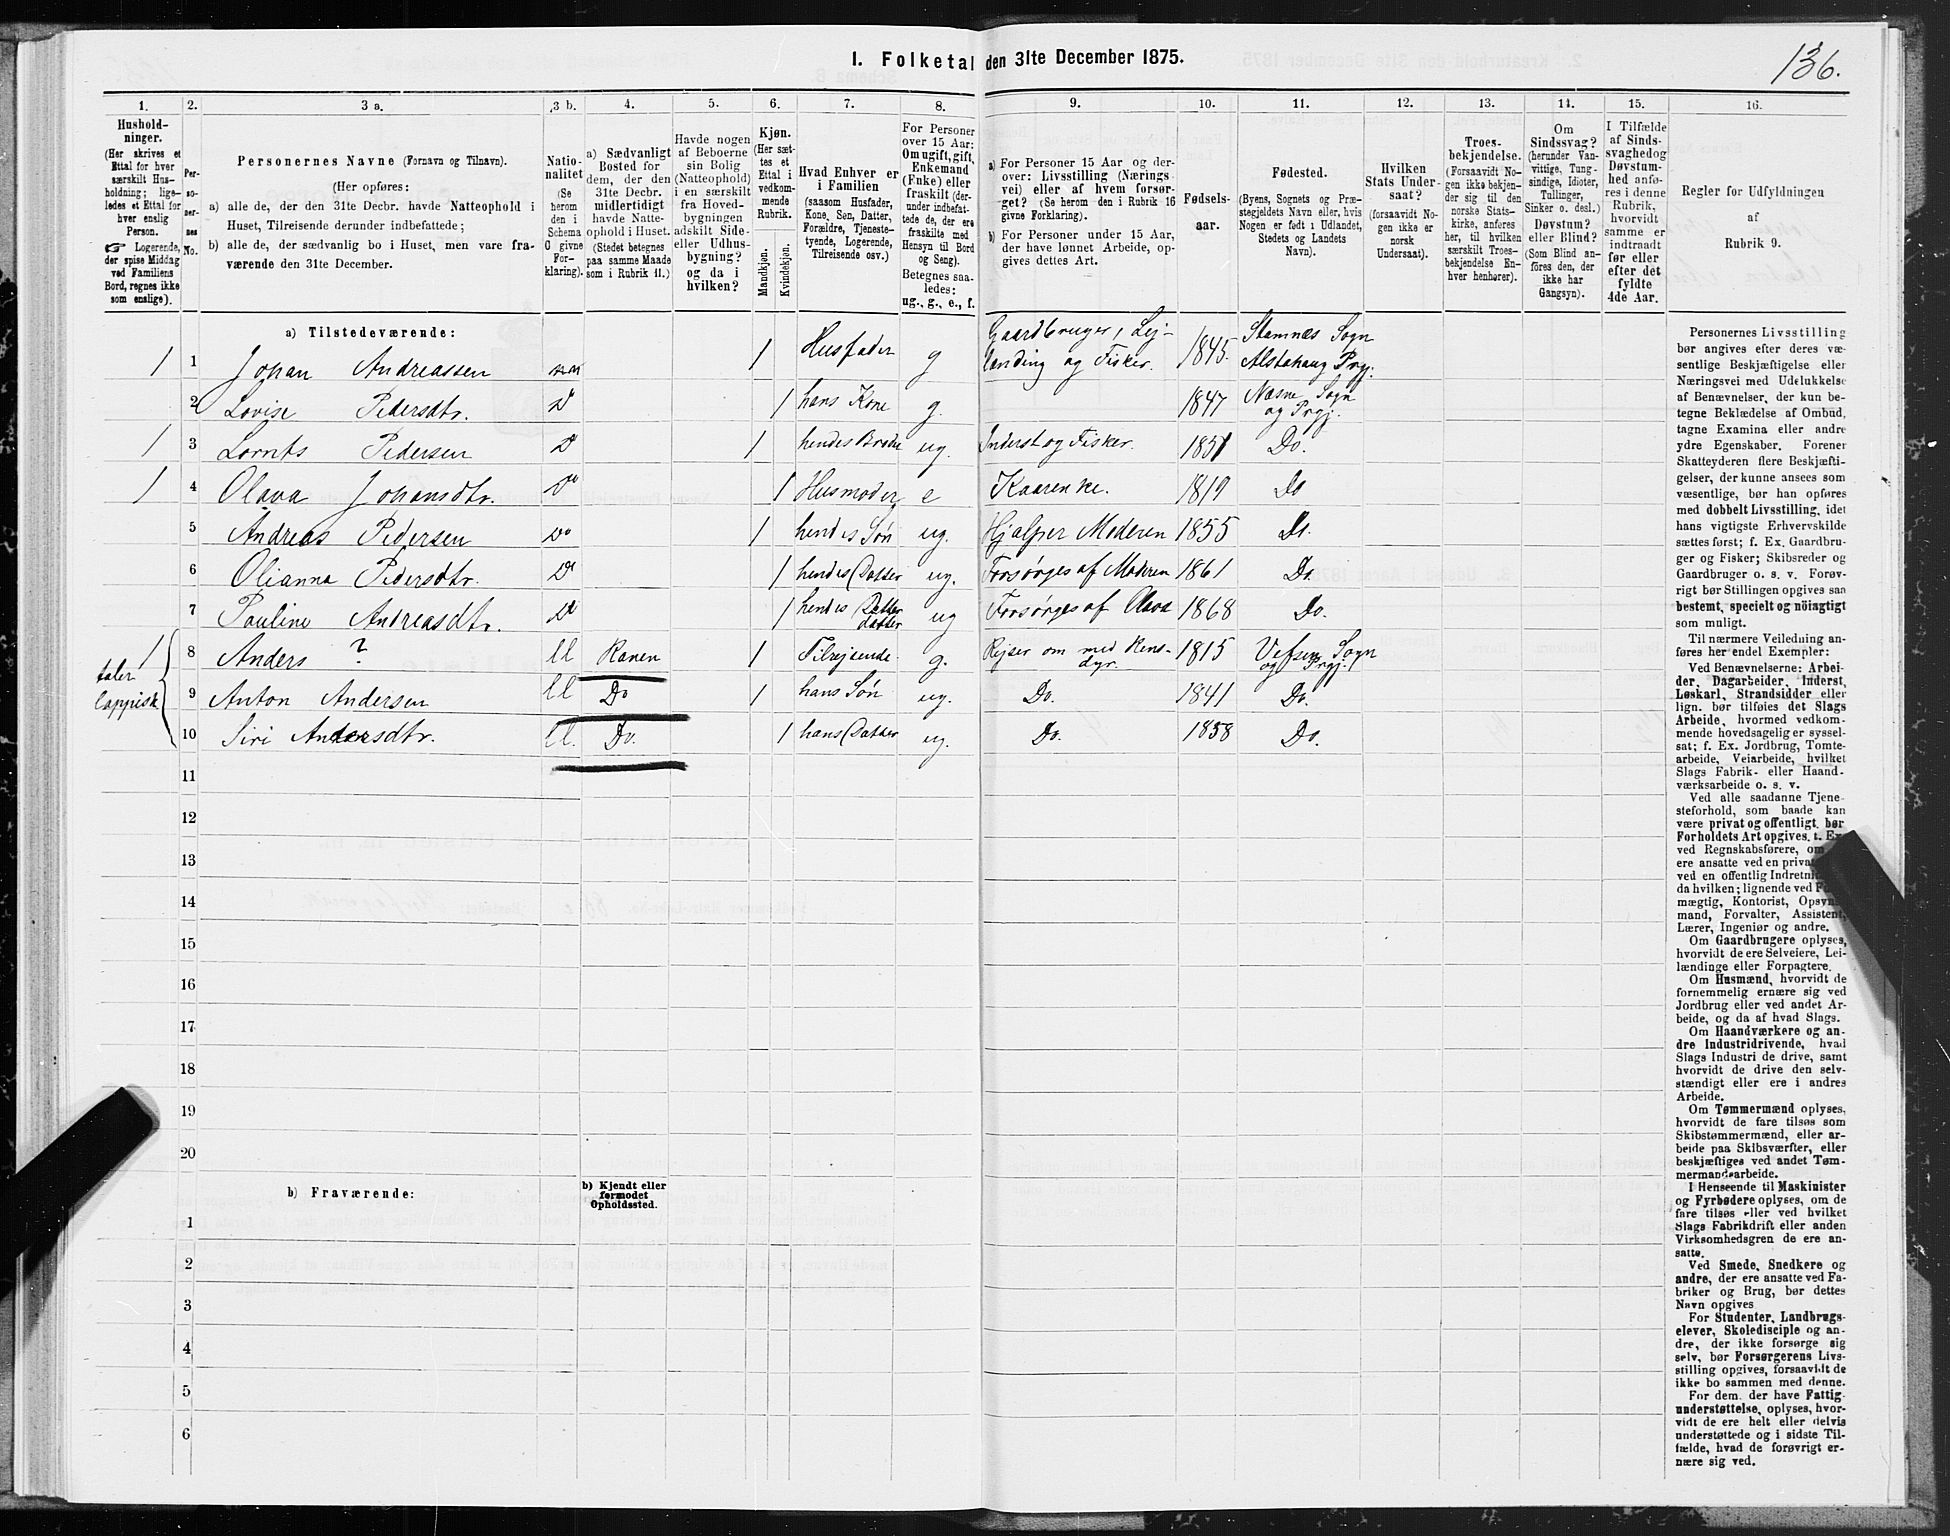 1. Folketal den 31te December 1875.
136.
1.
2.
3 a.
3 b.
4.
5.
6.
7.
8.
9.
10.
11.
12.
13.
14.
15.
16.
Hushold-
ninger.
(Her skrives et
Ettal for hver
særskilt Hus-
holdning; lige-
ledes et Ettal for
hver enslig
Person.
☞ Logerende,
der spise Middag
ved Familiens
Bord, regnes ikke
som enslige).
Per-
so-
ner-
nes
No.
Personernes Navne (Fornavn og Tilnavn).
(Her opføres:
a) alle de, der den 31te Decbr. havde Natteophold i
Huset, Tilreisende derunder indbefattede;
b) alle de, der sædvanlig bo i Huset, men vare fra-
værende den 31te December.
Natio-
nalitet
(Se
herom
den i
Schema
C givne
For-
klaring).
a) Sædvanligt
Bosted for
dem, der den
31te Decbr.
midlertidigt
havde Natte-
ophold i Huset.
(Stedet betegnes
paa samme Maade
som i Rubrik 11.)
Havde nogen
af Beboerne
sin Bolig
(Natteophold)
i en særskilt
fra Hoved-
bygningen
adskilt Side-
eller Udhus-
bygning?
og da i
hvilken?
Kjøn.
(Her sæt-
tes et
Ettal i
vedkom-
mende
Rubrik.
Mandkjøn.
Kvindekjøn.
Hvad Enhver er
i Familien
(saasom Husfader,
Kone, Søn, Datter,
Forældre, Tjeneste-
tyende, Logerende,
Tilreisende osv.)
For Personer
over 15 Aar:
Om ugift, gift,
Enkemand
(Enke) eller
fraskilt (der-
under indbefat-
tede de, der ere
fraskilte med
Hensyn til Bord
og Seng).
Betegnes saa-
ledes:
ug., g., e., f.
a) For Personer 15 Aar og der-
over: Livsstilling (Nærings-
vei) eller af hvem forsør-
get? (Se herom de i Rubrik 16
givne Forklaring).
b) For Personer under 15 Aar,
der have lønnet Arbeide, op-
gives dettes Art.
Fødsels-
aar.
Fødested.
(Byens, Sognets og Præ-
stegjeldets Navn eller, hvis
Nogen er født i Udlandet,
Stedets og Landets
Navn).
Hvilken
Stats Under-
saat?
(forsaavidt No-
gen ikke er
norsk
Undersaat).
Troes-
bekjendelse.
(Forsaavidt No-
gen ikke bekjen-
der sig til den
norske Stats-
kirke, anføres
her, til hvilken
særskilt Troes-
bekjendelse En-
hver henhører).
Om
Sindssvag?
(herunder Van-
vittige, Tung-
sindige, Idioter,
Tullinger,
Sinker o. desl.)
Døvstum?
eller Blind?
(Som Blind an-
føres den, der
ikke har
Gangsyn).
I Tilfælde
af Sinds-
svaghed og
Døvstum-
hed anfø-
res i denne
Rubrik,
hvorvidt
samme er
indtraadt
før eller
efter det
fyldte
4de Aar.
Regler for Udfyldningen
af
Rubrik 9.
a) Tilstedeværende:
1 1 Johan Andreassen nn 1 Husfader g Gaardbruger, Lej-
landing og Fisker. 1845. Stamnes Sogn
Alstahaug Prgj.
2 Lovise Pedersdtr. Do 1 hans Kone g. 1847 Nesne Sogn
og Prgj.
1 3 Lornts Pedersen Do 1 hendes Broder ug. Inderst og Fisker. 1851 Do.
1 4 Olava Johansdtr. Do 1 Husmoder e Kaarenke. 1819 Do
5 Andreas Pedersen Do 1 hendes Søn ug. Hjælper Moderen 1855 Do.
6 Olianna Pedersdtr. Do 1 hendes Datter ug. Forsørges af Moderen 1861 Do.
7 Pauline Andreasdtr. Do 1 hendes Datter
datter ug Forsørges af Olava 1868 Do.
1 8 Anders ? ll Ranen 1 Tilrejsende. g. Rejser om med Rens-
dyr. 1815 Vefsen Sogn
og Prgj.
taler
lappisk
9 Anton Andersen ll Do 1 hans Søn ug. Do. 1841 Do.
10 Siri Andersdtr. ll. Do. 1 hans Datter ug. Do. 1858 Do.
11
12
13
14
15
16
17
18
19
20
b) Fraværende:
b) Kjendt eller
formodet
Opholdssted.
1
2
3
4
5
6
Personernes Livsstilling
bør angives efter deres væ-
sentlige Beskjæftigelse eller
Næringsvei med Udelukkelse
af Benævnelser, der kun be-
tegne Beklædelse af Ombud,
tagne Examina eller andre
ydre Egenskaber. Forener
Skatteyderen flere Beskjæfti-
gelser, der kunne ansees som
væsentlige, bør han opføres
med dobbelt Livsstilling, idet
hans vigtigste Erhvervskilde
sættes først; f. Ex. Gaardbru-
ger og Fisker; Skibsreder og
Gaardbruger o. s. v. Forøv-
rigt bør Stillingen opgives saa
bestemt, specielt og nöiagtigt
som muligt.
Til nærmere Veiledning an-
føres her endel Exempler:
Ved Benævnelserne: Arbei-
der, Dagarbeider, Inderst,
Løskarl, Strandsidder eller
lign. bør tilføies det Slags
Arbeide, hvormed vedkom-
mende hovedsagelig er syssel-
sat; f. Ex. Jordbrug, Tomte-
arbeide, Veiarbeide, hvilket
Slags Fabrik- eller Haand-
værksarbeide o. s. v.
Ved alle saadanne Tjene-
steforhold, som baade kan
være privat og offentligt, bør
Forholdets Art opgives, t. Ex.
ved Regnskabsførere, om
ere ansatte ved en privat
ved en offentlig Indretni
da hvilken; lignende ved F
mægtig, Kontorist, Opsyns
mand, Forvalter, Assistent,
Lærer, Ingeniør og andre.
Om Gaardbrugere oplyses,
hvorvidt de ere Selveiere, Lei-
lændinge eller Forpagtere.
Om Husmænd, hvorvidt de
fornemmelig ernære sig ved
Jordbrug eller ved andet Ar-
beide, og da af hvad Slags.
Om Haandværkere og an-
dre Industridrivende, hvad
Slags Industri de drive, samt
hvorvidt de drive den selv-
stændigt eller ere i andres
Arbeide.
Om Tømmermænd oplyses,
hvorvidt de fare tilsøs som
Skibstømmermænd, eller ar-
beide paa Skibsværfter, eller
beskjæftiges ved andet Tøm-
mermandsarbeide.
I Henseende til Maskinister
og Fyrbødere oplyses, om de
fare tilsøs eller ved hvilket
Slags Fabrikdrift eller anden
Virksomhedsgren de ere an-
satte.
Ved Smede, Snedkere og
andre, der ere ansatte ved Fa-
briker og Brug, bør dettes
Navn opgives
For Studenter, Landbrugs-
elever, Skoledisciple og an-
dre, der ikke forsørge sig
selv, bør Forsørgerens Livs-
stilling opgives, forsaavidt de
ikke bo sammen med denne.
For dem, der have Fattig-
understøttelse, oplyses, hvor-
vidt de ere helt eller delvis
understøttede og i sidste Til-
fælde, hvad de forøvrigt er-
nære sig ved.